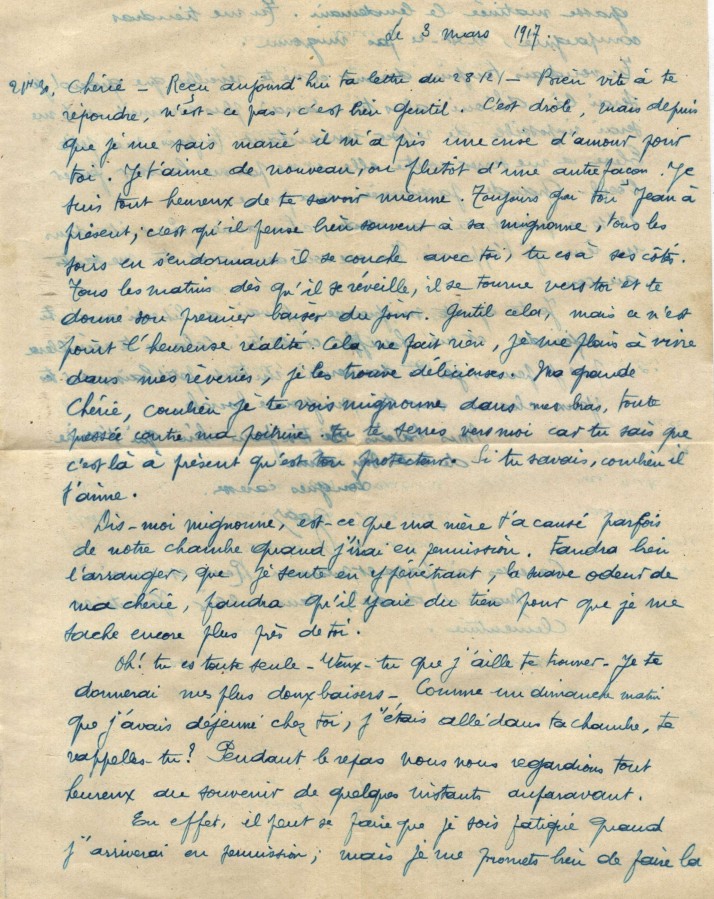 le 3 mars 1917.
21H30. Chérie – Reçu aujourd'hui ta lettre du 28(2) – Bien vite à te
répondre, n'est-ce pas, c'est bien gentil. C'est drôle, mais depuis
que je me sais marié il m'a pris une crise d'amour pour
toi. Je t'aime de nouveau, ou plutôt d'une autre façon. Je
suis tout heureux de te savoir mienne. Toujours gai ton Jean à
présent, c'est qu'il pense bien souvent à sa mignonne, tous les
soirs en s'endormant il se couche avec toi, tu es à ses côtés.
Tous les matins dès qu'il se réveille, il se tourne vers toi et te
donne son premier baiser du jour. Gentil cela, mais ce n'est
point l'heureuse réalité. Cela ne fait rien, je me plais à vivre
dans mes rêveries, je les trouve délicieuses. Ma grande
Chérie, combien je te vois mignonne dans mes bras, toute
pressée contre ma poitrine, tu te serres vers moi car tu sais que
c'est là à présent qu'est ton protecteur. Si tu savais, combien il
t'aime.
Dis-moi mignonne, est-ce que ma mère t'a causé parfois
de notre chambre quand j'irai en permission. Faudra bien
l'arranger, que je sente en y pénétrant, la suave odeur de
ma chérie, faudra qu'il y aie du tien pour que je me
sache encore plus près de toi.
Oh! tu es toute seule – Veux-tu que j'aille te trouver – Je te
donnerai mes plus doux baisers – Comme un dimanche matin
que j'avais déjeuné chez toi, j'étais allé dans ta chambre, te
rappelles-tu? Pendant le repas nous nous regardions tout
heureux au souvenir de quelques instants auparavant.
En effet, il peut se faire que je sois fatigué quand
j'arriverai en permission; mais je me promets bien de faire la